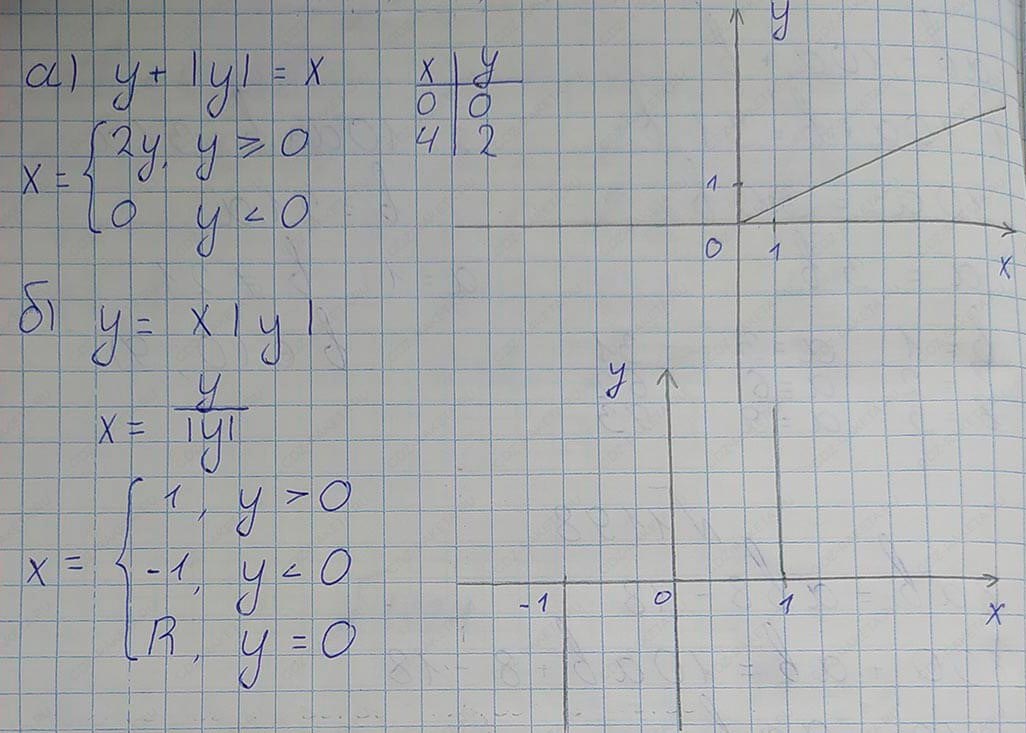 а) y + |y| = x
x = { 2y, y ≥ 0
0 y < 0
x | y
0 | 0
4 | 2
y
1
0 1
x
б) y = x|y|
x = y/|y|
x = { 1, y > 0
-1, y < 0
R, y = 0
y
-1 0 1
x